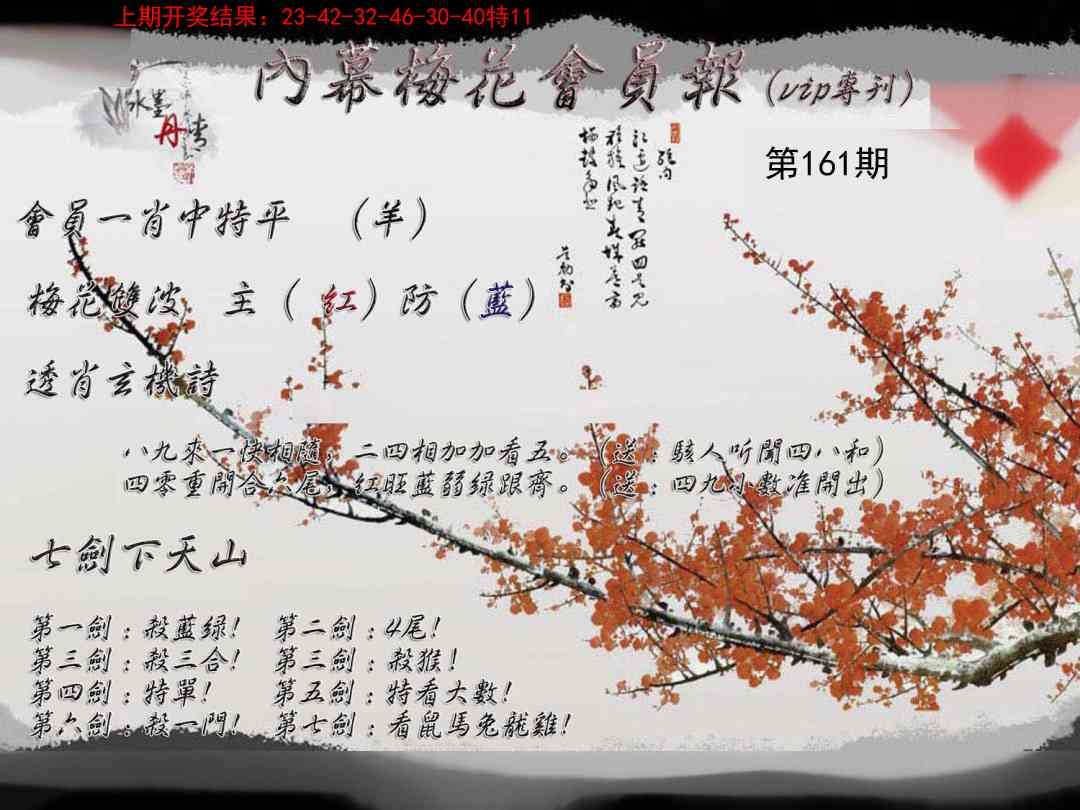 上期开奖结果：23-42-32-46-30-40特11
內幕梅花會員報（vip專刊）
水墨
丹青
第161期
會員一肖中特平　（羊）
梅花雙波　主（紅）防（藍）
透肖玄機詩
八九來一快相隨，二四相加加看五。（送：駭人听聞四八和）
四零重開合六尾，紅旺藍弱绿跟齊。（送：四九小數准開出）
七劍下天山
第一劍：殺藍绿！　第二劍：4尾！
第三劍：殺三合！　第三劍：殺猴！
第四劍：特單！　第五劍：特看大數！
第六劍：殺一門！　第七劍：看鼠馬兔龍雞！